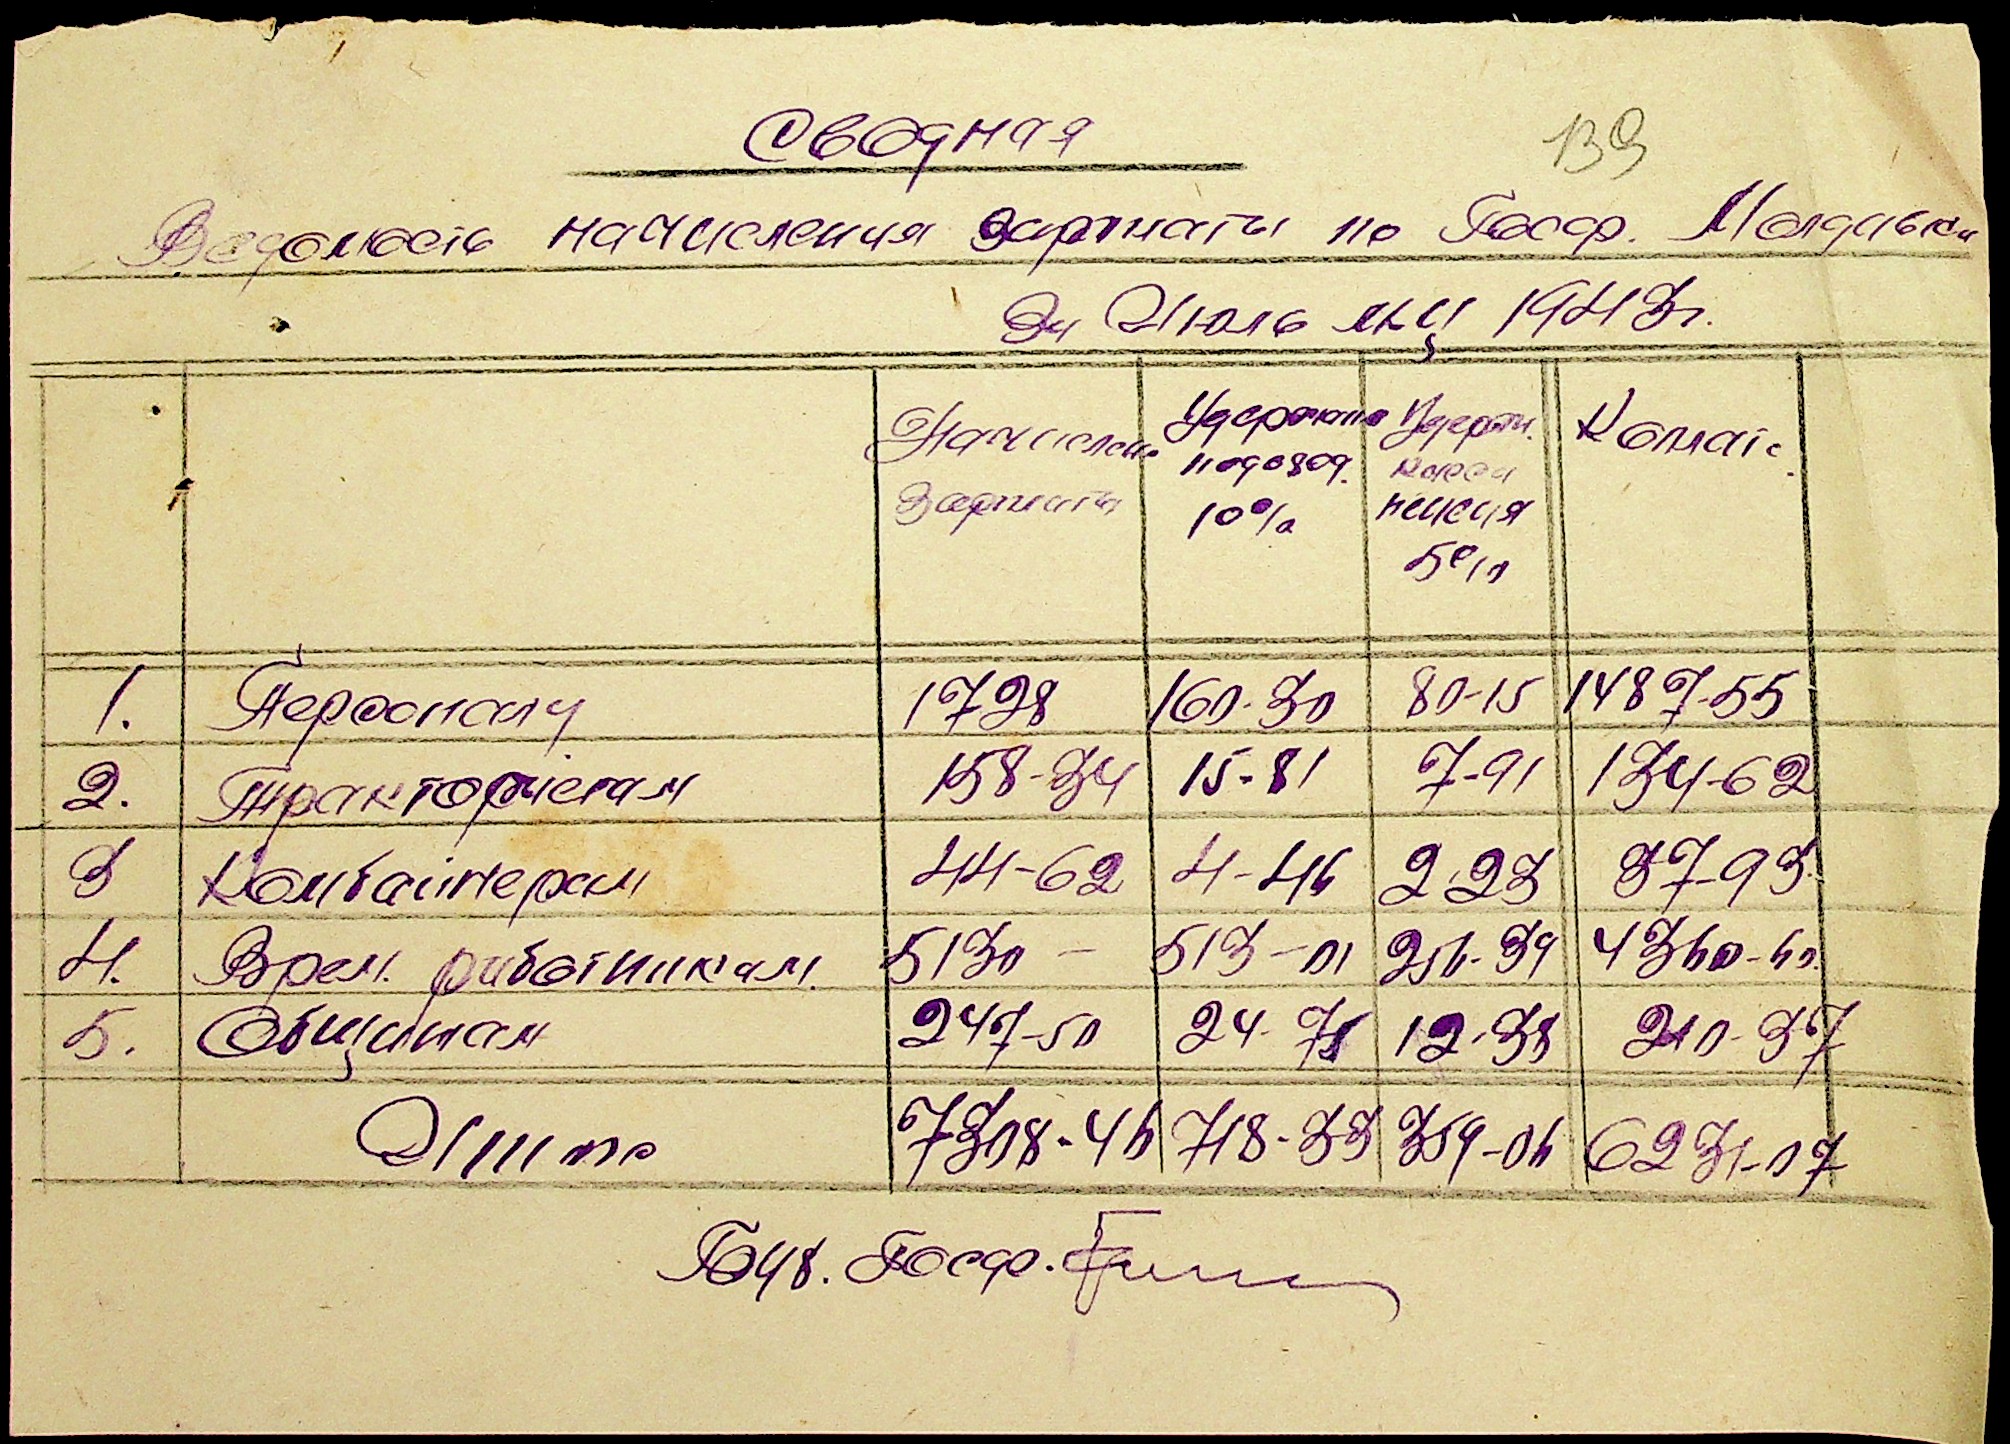 Сводная
139
Ведомость начисления зарплаты по Госф. Молдавка
За Июль м-ц 1943 г.
Начислено зарплаты
Удержано подоход. 10%
Удерж. 5%
К оплате
1. Персоналу 1728 160-30 80-15 1487-55
2. Трактористам 158-34 15-81 7-91 134-62
3 Комбайнерам 44-62 4-46 2-23 37-93
4. Врем. работникам. 5130 — 513-01 256-39 4360-60
5. Общинам 247-50 24-75 12-38 210-37
Итого 7308-46 718-33 359-06 6231-07
Бух. Госф.